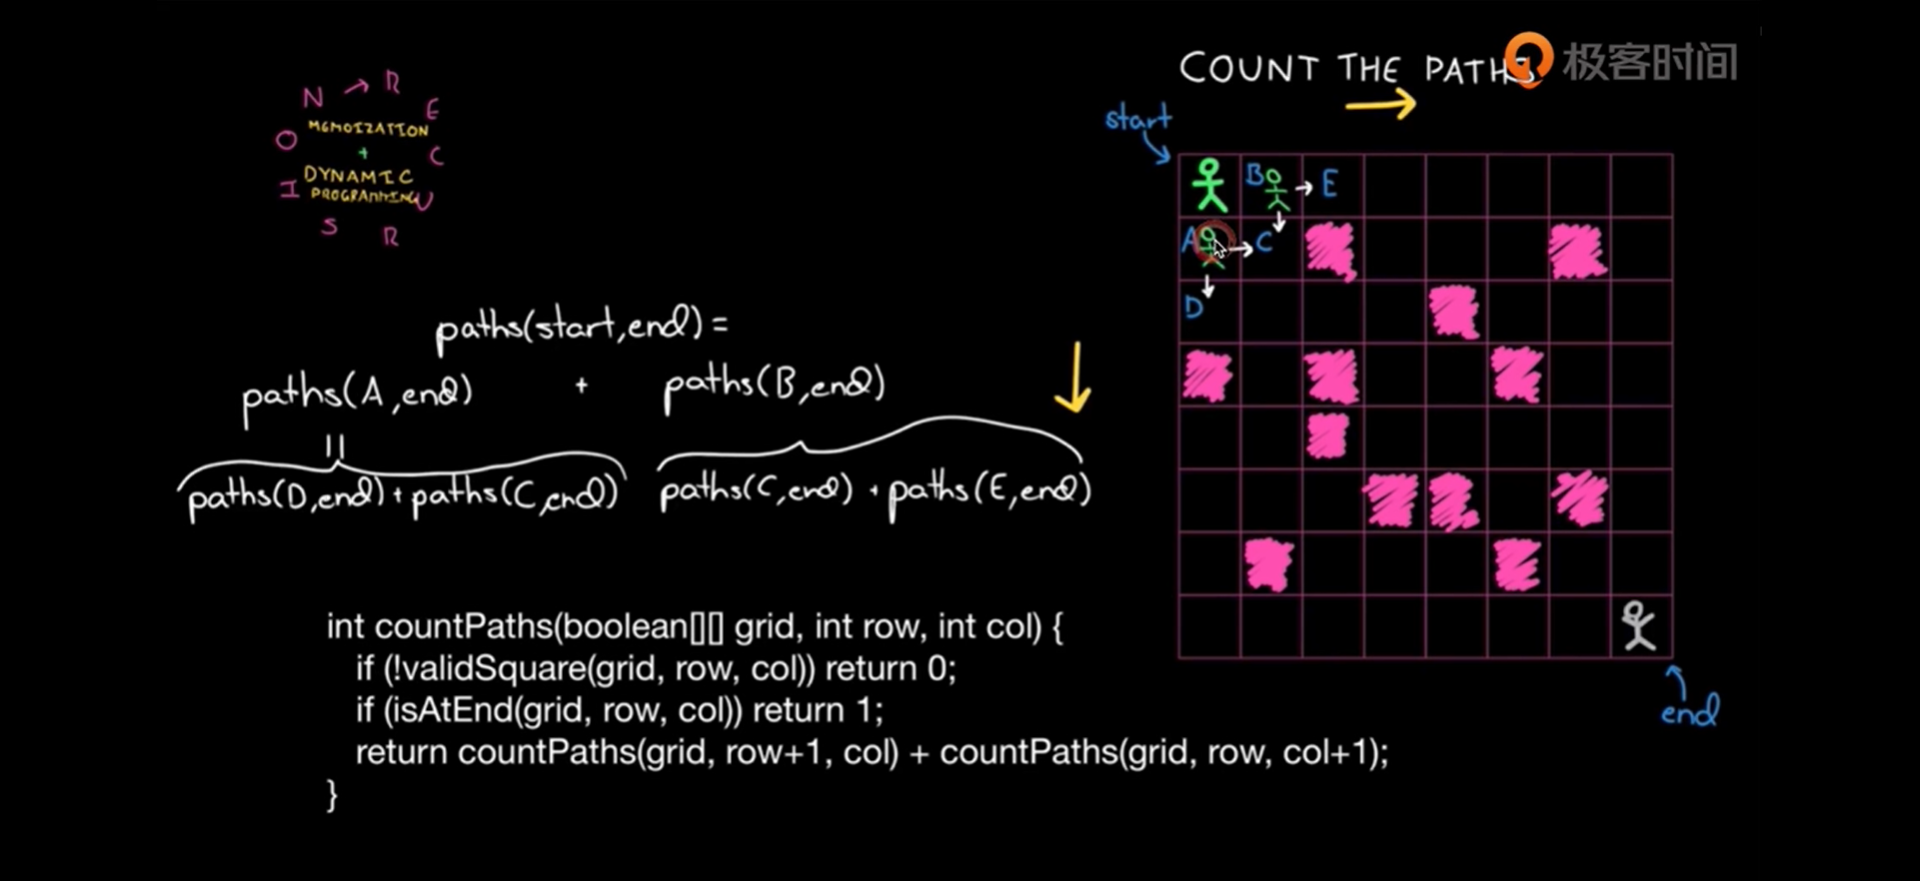 COUNT THE PATHS
极客时间
start
N → R
E
MEMOIZATION
O
+
C
DYNAMIC
I
PROGRAMMING
U
S
R
B → E
A → C
D
paths(start,end) =
paths(A,end) + paths(B,end)
||
paths(D,end) + paths(C,end) paths(C,end) + paths(E,end)
int countPaths(boolean[][] grid, int row, int col) {
if (!validSquare(grid, row, col)) return 0;
if (isAtEnd(grid, row, col)) return 1;
return countPaths(grid, row+1, col) + countPaths(grid, row, col+1);
}
end